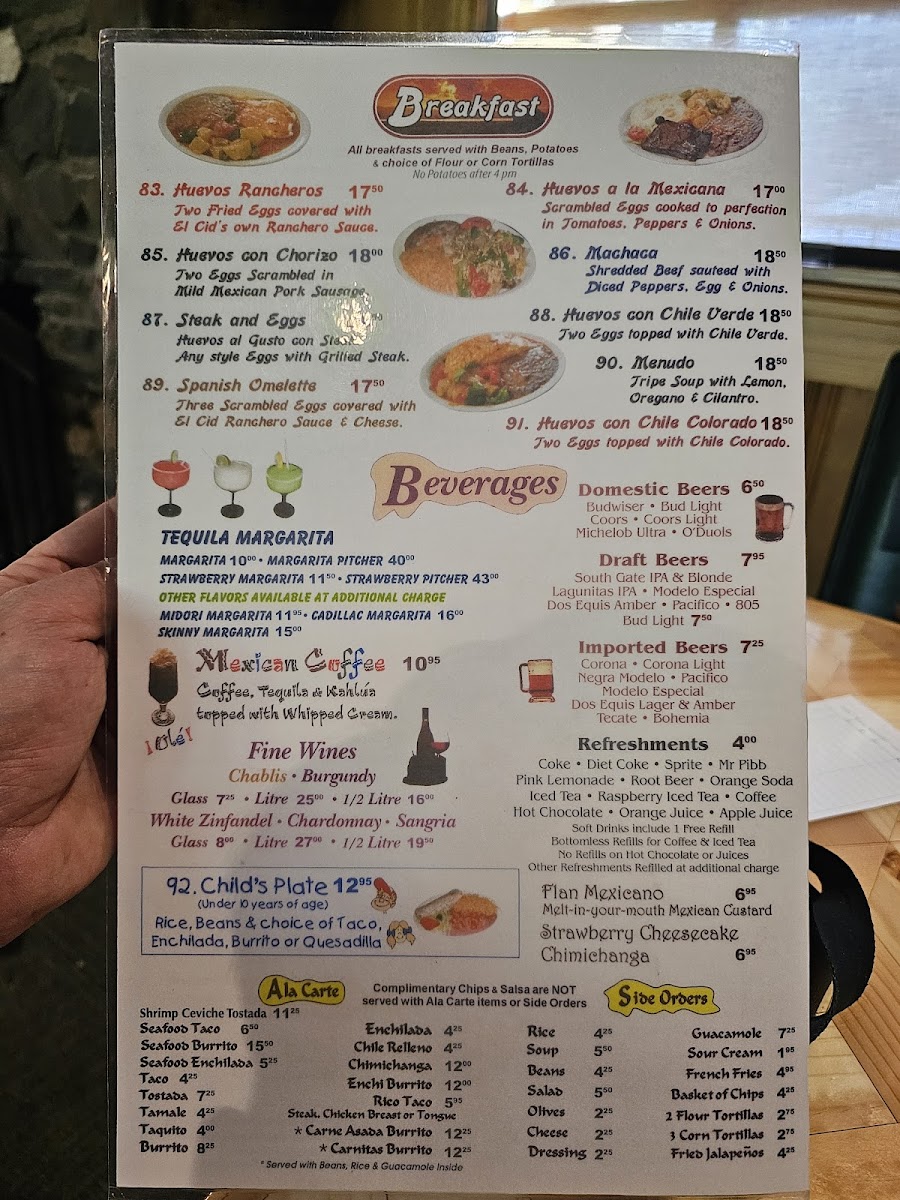 Breakfast
All breakfasts served with Beans, Potatoes
& choice of Flour or Corn Tortillas
No Potatoes after 4 pm
83. Huevos Rancheros 17⁵⁰
Two Fried Eggs covered with
El Cid's own Ranchero Sauce.
84. Huevos a la Mexicana 17⁰⁰
Scrambled Eggs cooked to perfection
in Tomatoes, Peppers & Onions.
85. Huevos con Chorizo 18⁰⁰
Two Eggs Scrambled in
Mild Mexican Pork Sausage.
86. Machaca 18⁵⁰
Shredded Beef sauteed with
Diced Peppers, Egg & Onions.
87. Steak and Eggs
Huevos al Gusto con
Any style Eggs with Grilled Steak.
88. Huevos con Chile Verde 18⁵⁰
Two Eggs topped with Chile Verde.
89. Spanish Omelette 17⁵⁰
Three Scrambled Eggs covered with
El Cid Ranchero Sauce & Cheese.
90. Menudo 18⁵⁰
Tripe Soup with Lemon,
Oregano & Cilantro.
91. Huevos con Chile Colorado 18⁵⁰
Two Eggs topped with Chile Colorado.
Beverages
TEQUILA MARGARITA
MARGARITA 10⁰⁰ • MARGARITA PITCHER 40⁰⁰
STRAWBERRY MARGARITA 11⁵⁰ • STRAWBERRY PITCHER 43⁰⁰
OTHER FLAVORS AVAILABLE AT ADDITIONAL CHARGE
MIDORI MARGARITA 11⁹⁵ • CADILLAC MARGARITA 16⁰⁰
SKINNY MARGARITA 15⁰⁰
Mexican Coffee 10⁹⁵
Coffee, Tequila & Kahlúa
topped with Whipped Cream.
¡Olé!
Fine Wines
Chablis • Burgundy
Glass 7²⁵ • Litre 25⁰⁰ • 1/2 Litre 16⁰⁰
White Zinfandel • Chardonnay • Sangria
Glass 8⁰⁰ • Litre 27⁰⁰ • 1/2 Litre 19⁵⁰
92. Child's Plate 12⁹⁵
(Under 10 years of age)
Rice, Beans & choice of Taco,
Enchilada, Burrito or Quesadilla
Domestic Beers 6⁵⁰
Budwiser • Bud Light
Coors • Coors Light
Michelob Ultra • O'Duols
Draft Beers 7⁹⁵
South Gate IPA & Blonde
Lagunitas IPA • Modelo Especial
Dos Equis Amber • Pacifico • 805
Bud Light 7⁵⁰
Imported Beers 7²⁵
Corona • Corona Light
Negra Modelo • Pacifico
Modelo Especial
Dos Equis Lager & Amber
Tecate • Bohemia
Refreshments 4⁰⁰
Coke • Diet Coke • Sprite • Mr Pibb
Pink Lemonade • Root Beer • Orange Soda
Iced Tea • Raspberry Iced Tea • Coffee
Hot Chocolate • Orange Juice • Apple Juice
Soft Drinks include 1 Free Refill
Bottomless Refills for Coffee & Iced Tea
No Refills on Hot Chocolate or Juices
Other Refreshments Refilled at additional charge
Flan Mexicano 6⁹⁵
Melt-in-your-mouth Mexican Custard
Strawberry Cheesecake
Chimichanga 6⁹⁵
Ala Carte
Complimentary Chips & Salsa are NOT
served with Ala Carte items or Side Orders
Side Orders
Shrimp Ceviche Tostada 11²⁵
Seafood Taco 6⁵⁰
Seafood Burrito 15⁵⁰
Seafood Enchilada 5²⁵
Taco 4²⁵
Tostada 7²⁵
Tamale 4²⁵
Taquito 4⁰⁰
Burrito 8²⁵
Enchilada 4²⁵
Chile Relleno 4²⁵
Chimichanga 12⁰⁰
Enchi Burrito 12⁰⁰
Rico Taco 5⁹⁵
Steak, Chicken Breast or Tongue
* Carne Asada Burrito 12²⁵
* Carnitas Burrito 12²⁵
* Served with Beans, Rice & Guacamole Inside
Rice 4²⁵
Soup 5⁵⁰
Beans 4²⁵
Salad 5⁵⁰
Olives 2²⁵
Cheese 2²⁵
Dressing 2²⁵
Guacamole 7²⁵
Sour Cream 1⁹⁵
French Fries 4⁹⁵
Basket of Chips 4²⁵
2 Flour Tortillas 2⁷⁵
3 Corn Tortillas 2⁷⁵
Fried Jalapeños 4²⁵